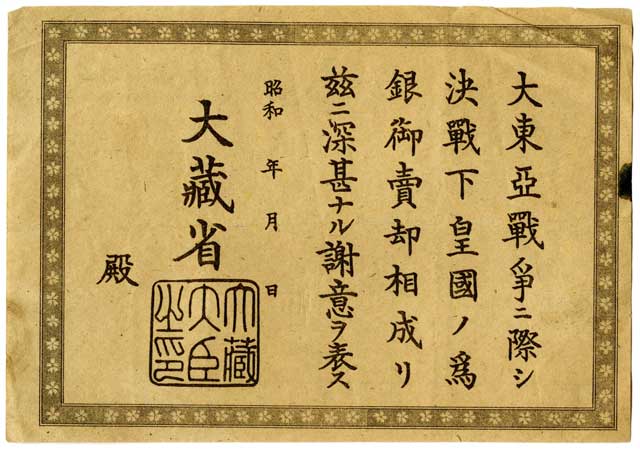 大東亞戰爭ニ際シ
決戰下皇國ノ爲
銀御賣却相成リ
茲ニ深甚ナル謝意ヲ表ス
昭和 年 月 日
大藏省
大藏
大臣
之印
殿